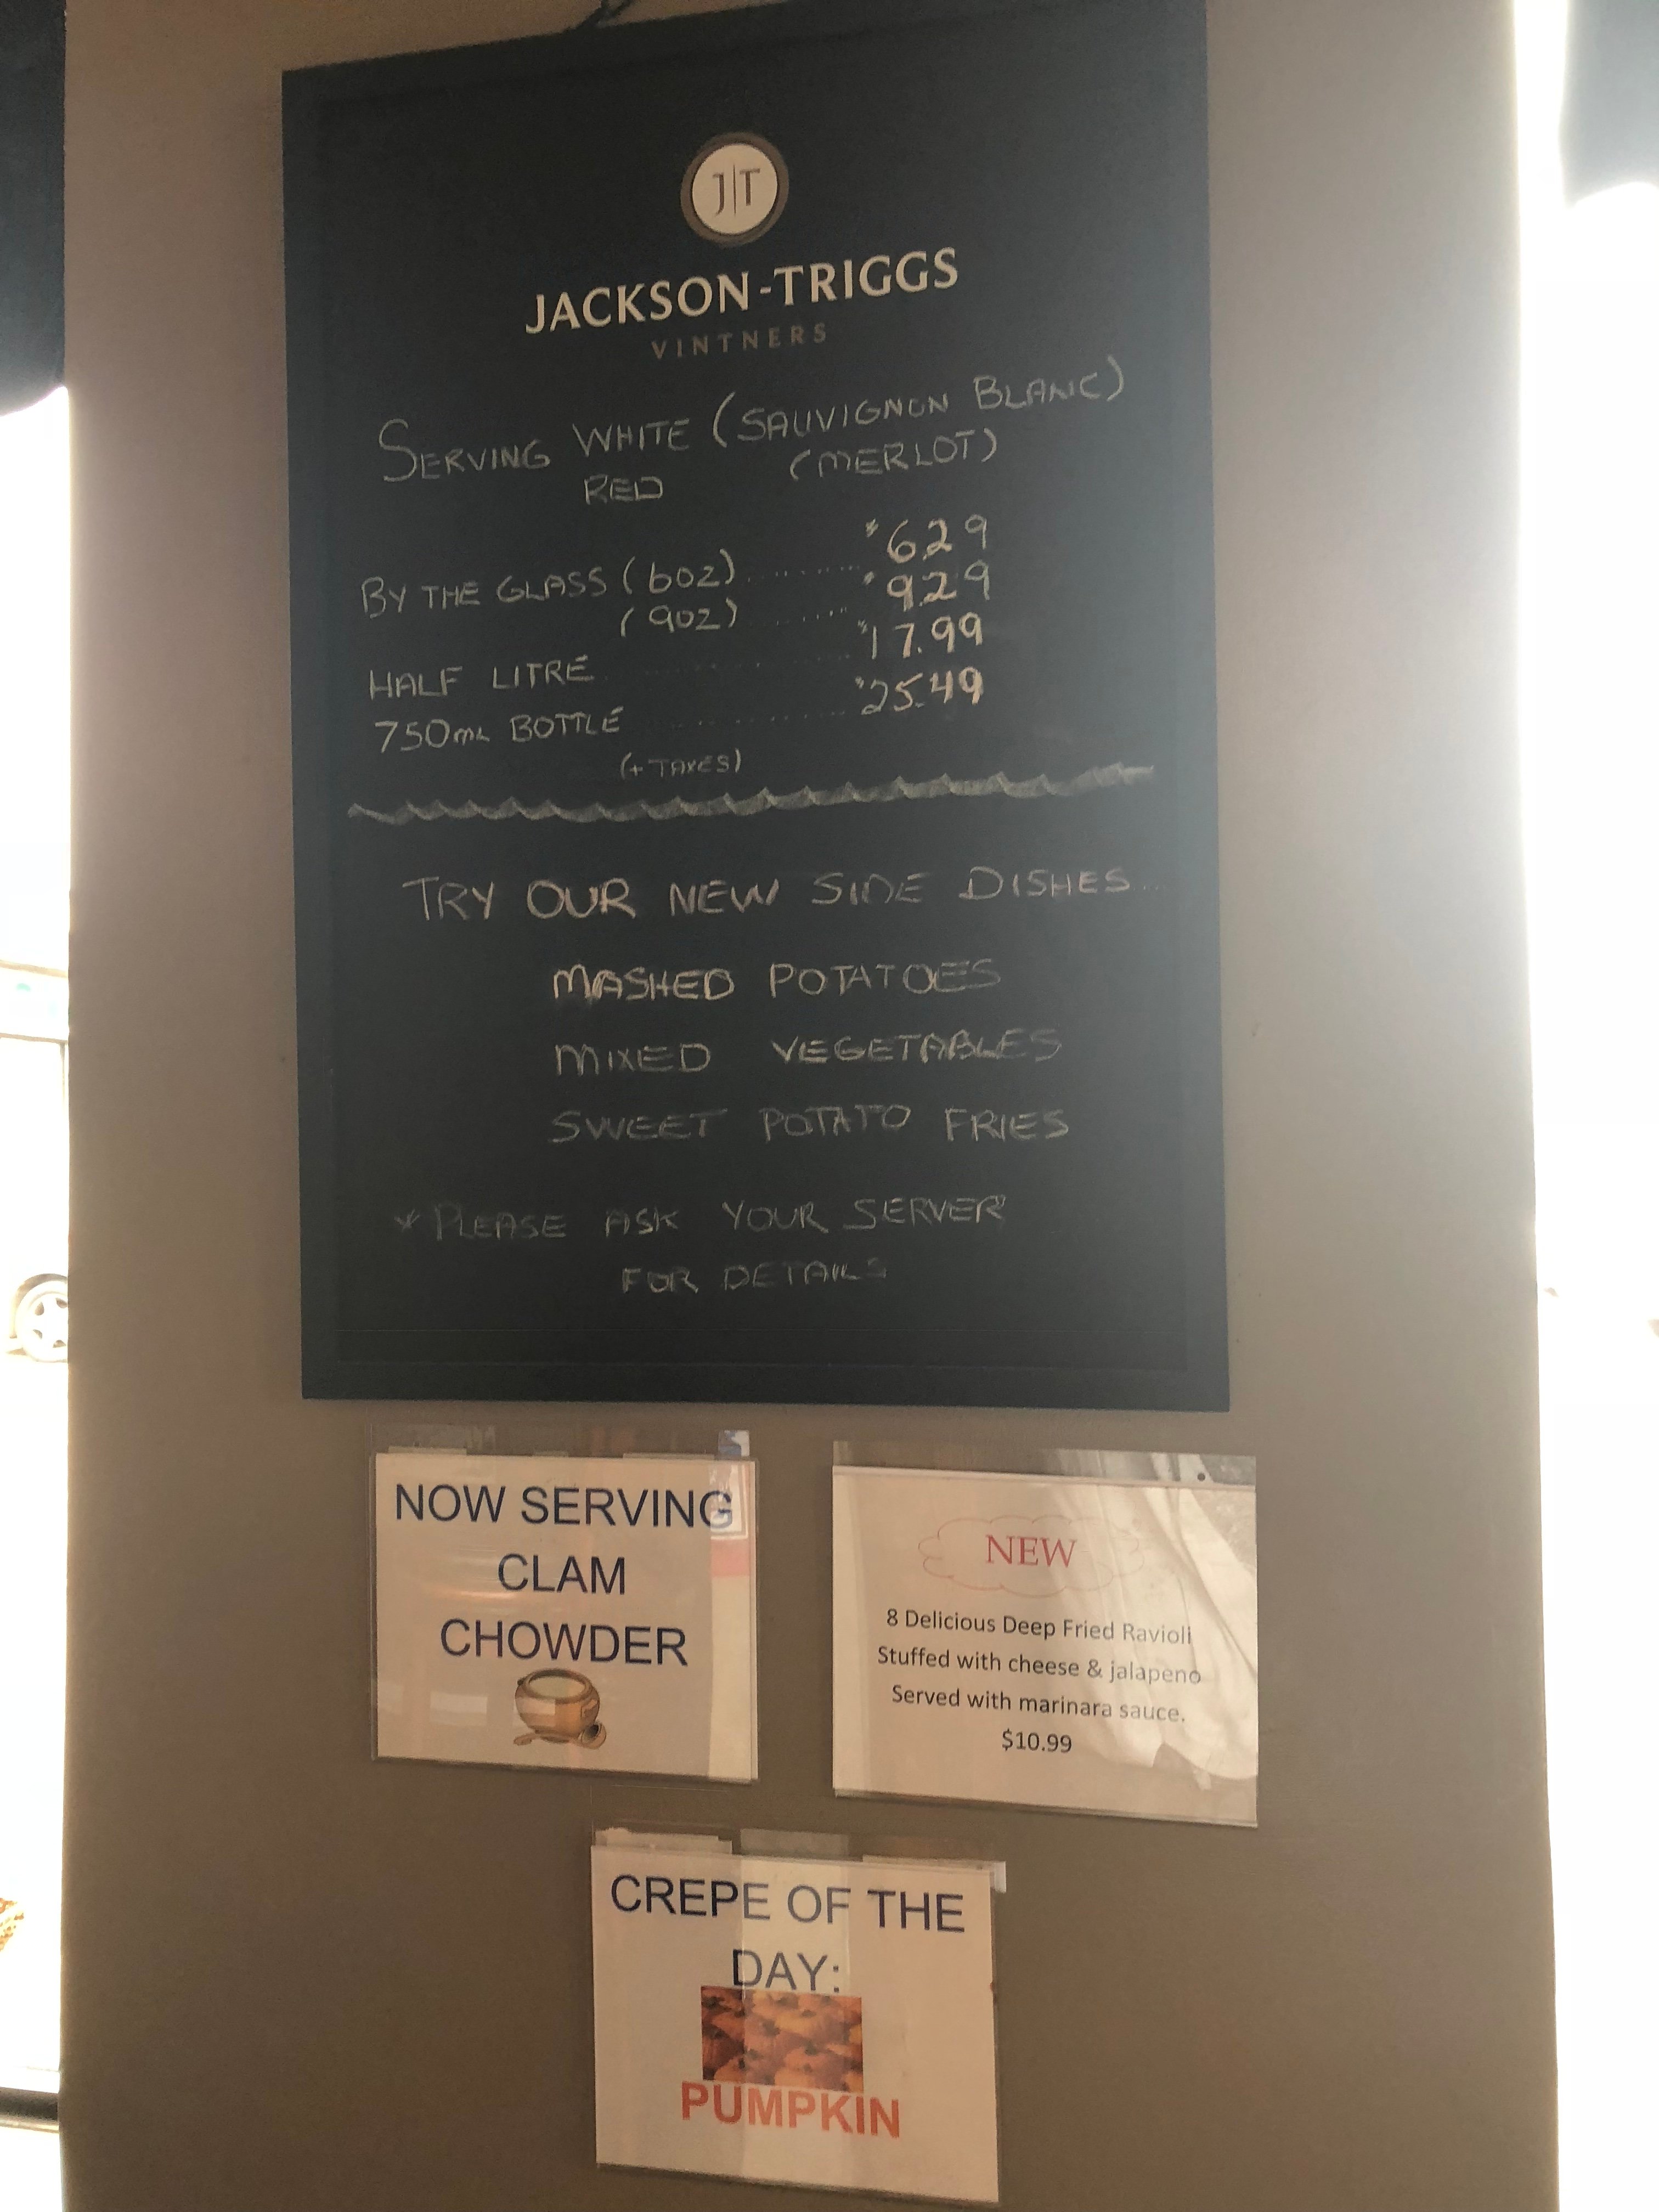 J|T
JACKSON-TRIGGS
VINTNERS
SERVING WHITE (SAUVIGNON BLANC)
RED (MERLOT)
BY THE GLASS (6OZ) ........ $6.29
(9OZ) ........ $9.29
HALF LITRE ........ $17.99
750ML BOTTLE ........ $25.49
(+ TAXES)
TRY OUR NEW SIDE DISHES...
MASHED POTATOES
MIXED VEGETABLES
SWEET POTATO FRIES
* PLEASE ASK YOUR SERVER
FOR DETAILS
NOW SERVING
CLAM
CHOWDER
NEW
8 Delicious Deep Fried Ravioli
Stuffed with cheese & jalapeno
Served with marinara sauce.
$10.99
CREPE OF THE
DAY:
PUMPKIN